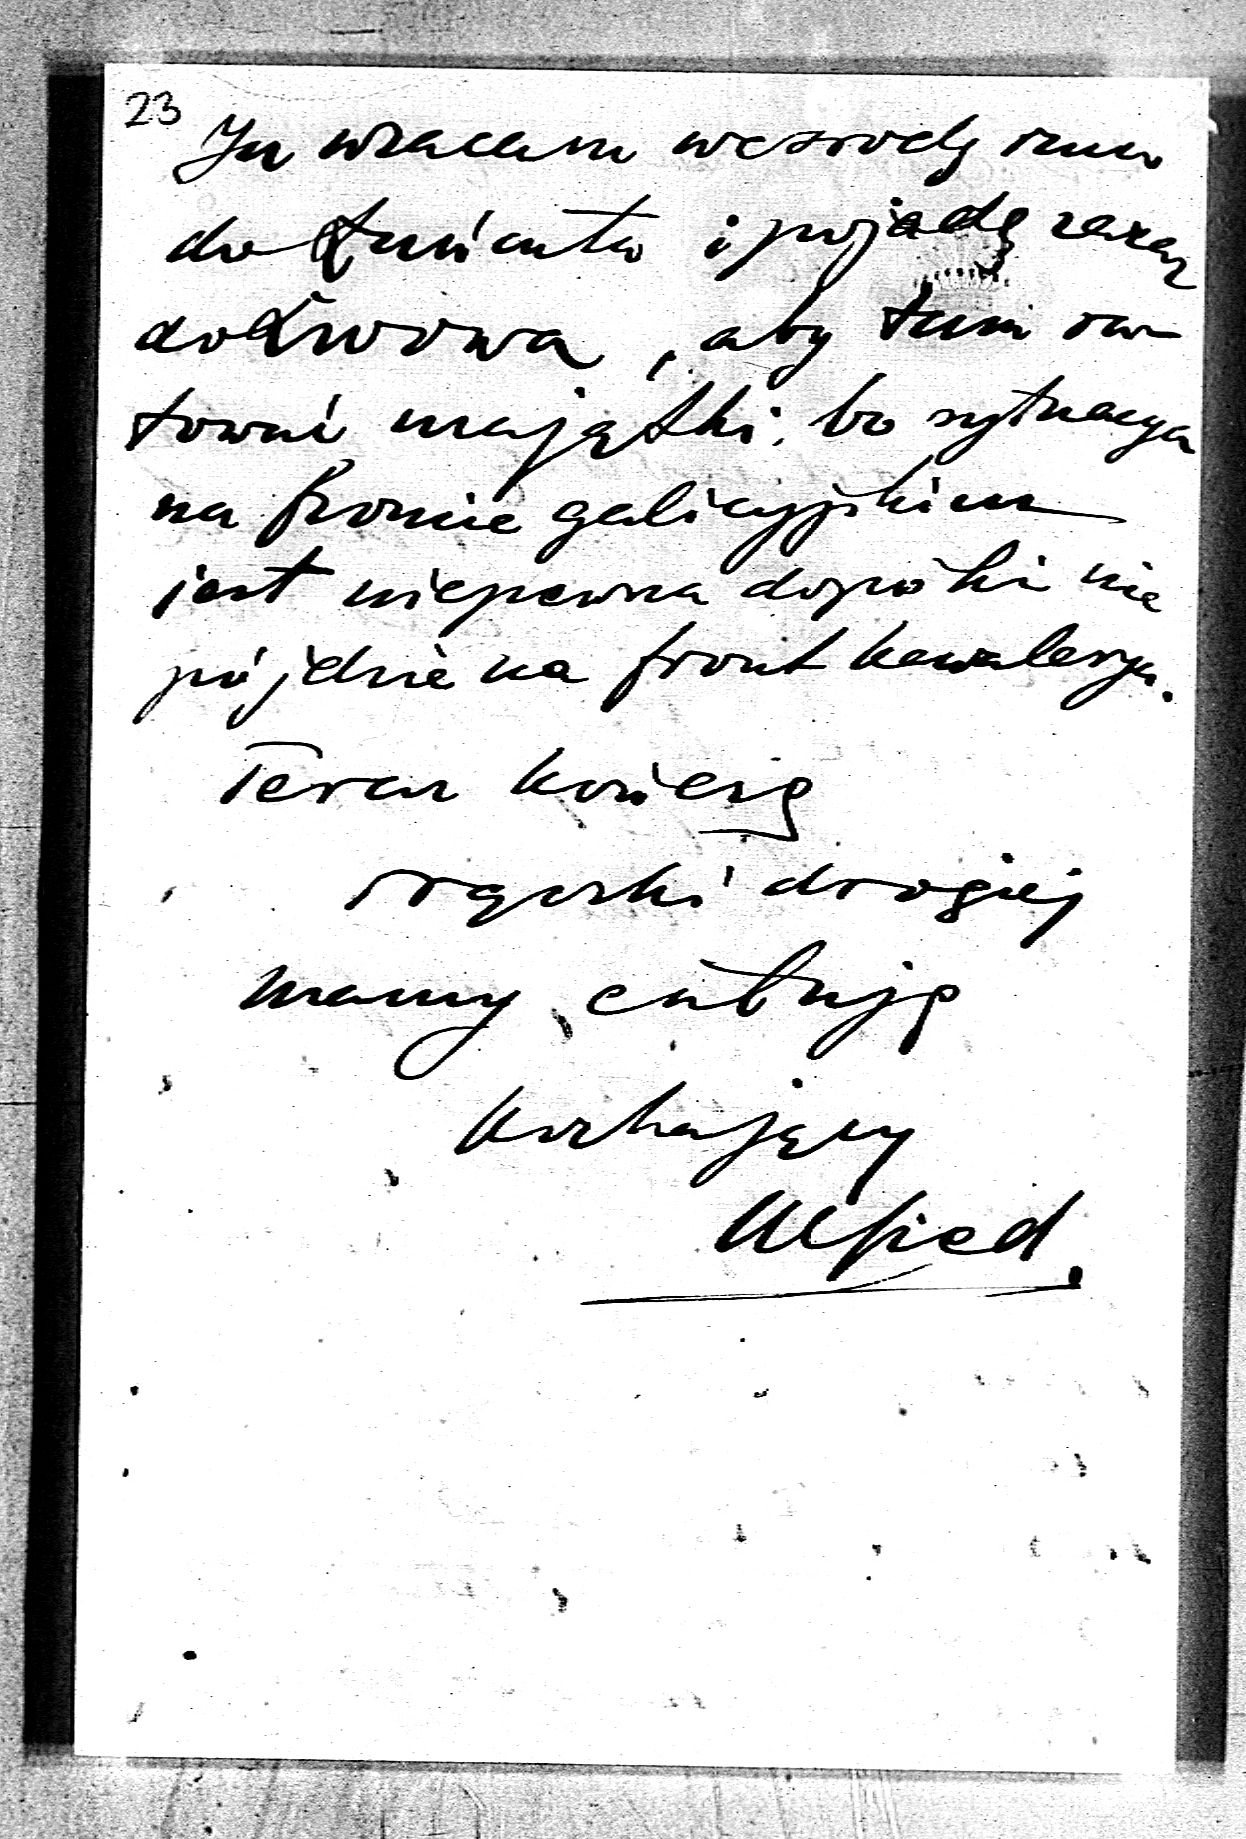 23
Ja wracam we środę rano
do Łańcuta i pojadę zaraz
do Lwowa, aby tam ra-
tować majątki, bo sytuacya
na froncie galicyjskim
jest niepewna dopóki nie
pójdzie na front kawalerya.
Teraz kończę
rączki drogiej
mamy całuję
kochający
Alfred.